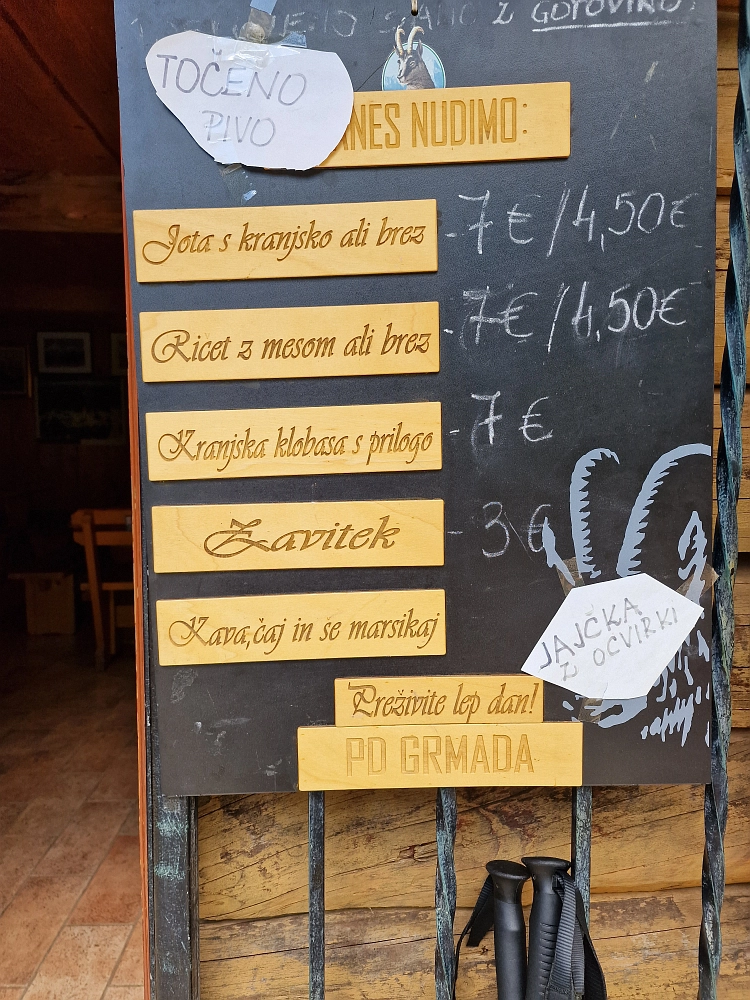 Z GOTOVINO!
TOČENO
PIVO
ANES NUDIMO:
Jota s kranjsko ali brez - 7 € / 4,50 €
Ricet z mesom ali brez - 7 € / 4,50 €
Kranjska klobasa s prilogo - 7 €
Zavitek - 3 €
Kava, čaj in še marsikaj
JAJČKA
Z OCVIRKI
Preživite lep dan!
PD GRMADA